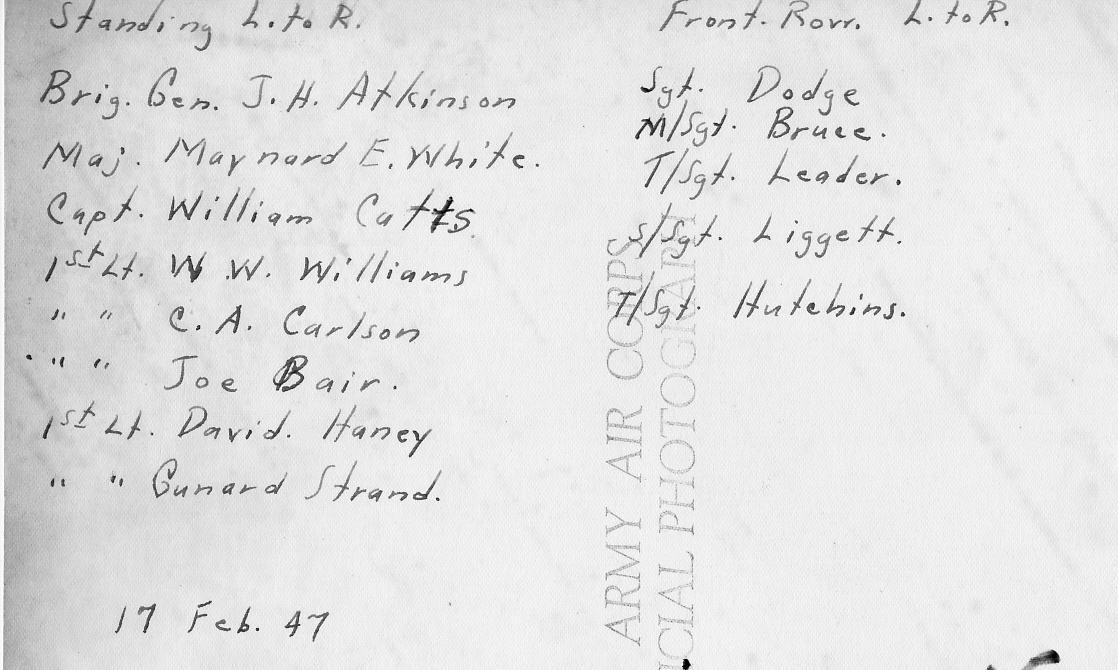 Standing L. to R.
Brig. Gen. J. H. Atkinson
Maj. Maynard E. White.
Capt. William Catts
1st Lt. W. W. Williams
" " C. A. Carlson
" " Joe Bair.
1st Lt. David. Haney
" " Gunard Strand.
17 Feb. 47
Front. Row. L. to R.
Sgt. Dodge
M/Sgt. Bruce.
T/Sgt. Leader.
S/Sgt. Liggett.
T/Sgt. Hutchins.
ARMY AIR CORPS
PHOTOGRAPH